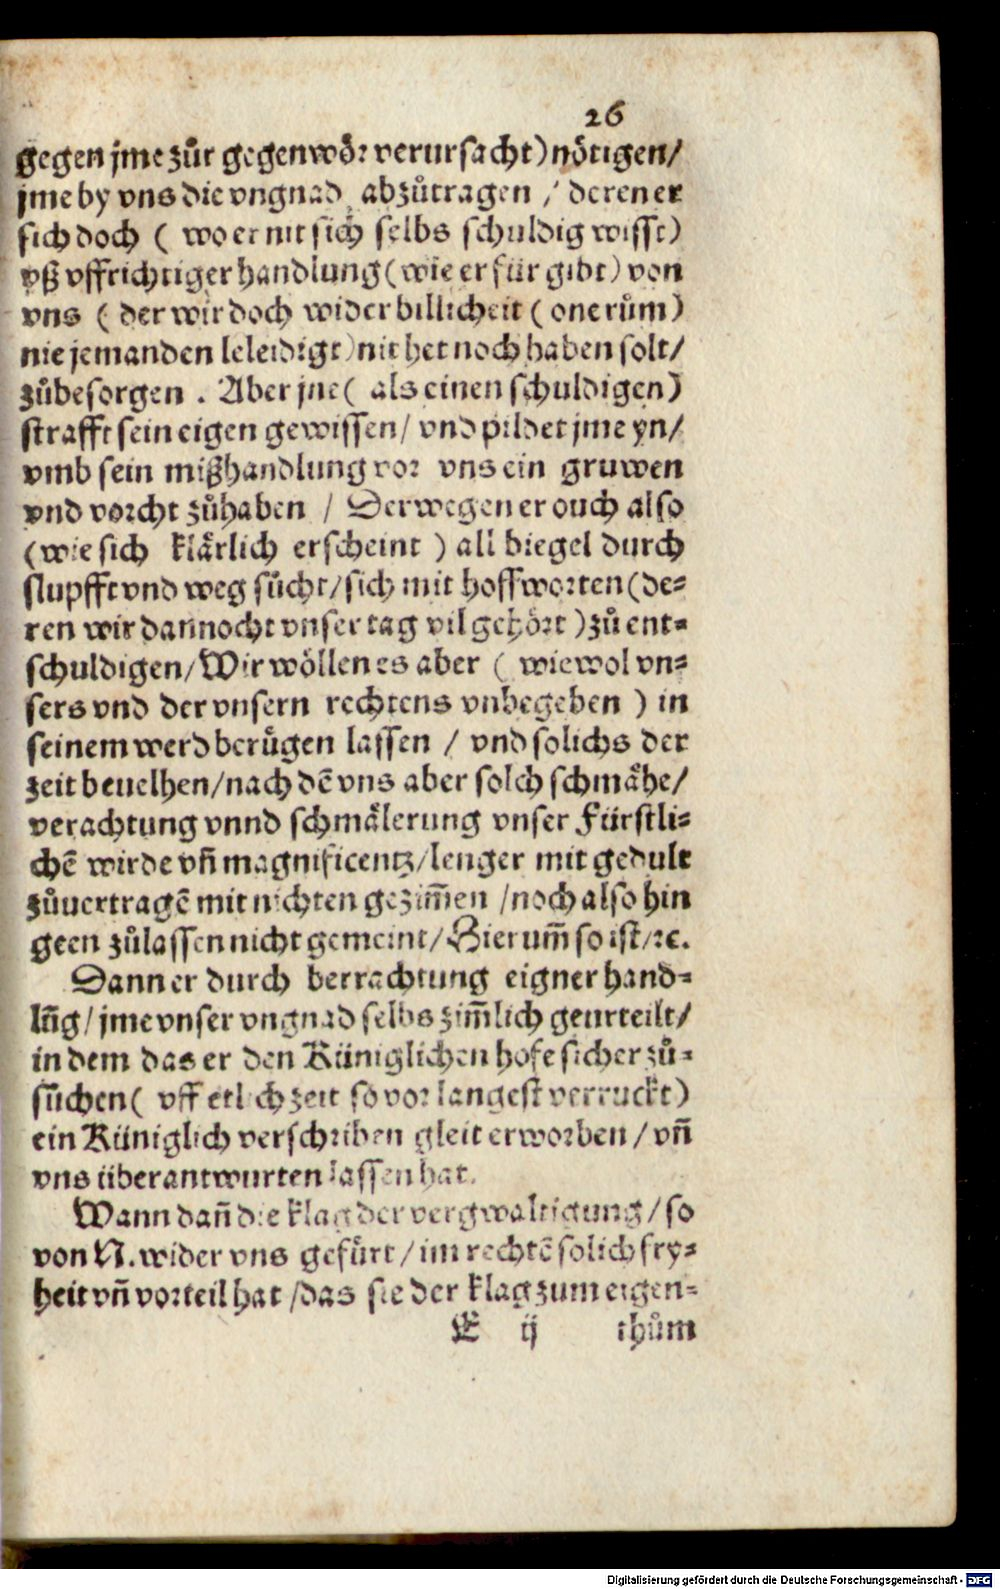 26
gegen jme zůr gegenwör verursacht) nötigen/
jme by vns die vngnad abzůtragen / deren er
sich doch ( wo er nit sich selbs schuldig wisst)
vß vffrichtiger handlung (wie er für gibt) von
vns ( der wir doch wider billicheit ( one rům)
nie jemanden leleidigt) nit het noch haben solt/
zůbesorgen . Aber jne ( als einen schuldigen)
strafft sein eigen gewissen/ vnd pildet jme yn/
vmb sein mißhandlung vor vns ein gruwen
vnd vorcht zůhaben / Derwegen er ouch also
(wie sich klärlich erscheint ) all biegel durch
slupfft vnd weg sůcht/ sich mit hoffworten (de-
ren wir dannocht vnser tag vil gehört ) zů ent-
schuldigen/ Wir wöllen es aber ( wiewol vn-
sers vnd der vnsern rechtens vnbegeben ) in
seinem werd berůgen lassen / vnd solichs der
zeit beuelhen/ nach dē vns aber solch schmähe/
verachtung vnnd schmälerung vnser Fürstli-
chē wirde vn̄ magnificentz/ lenger mit gedult
zůuertragē mit nichten gezim̄en / noch also hin
geen zůlassen nicht gemeint/ Hierum̄ so ist/ ꝛc.
Dann er durch betrachtung eigner hand-
lūg/ jme vnser vngnad selbs zim̄lich geurteilt/
in dem das er den Küniglichen hofe sicher zů-
sůchen ( vff etlich zeit so vor langest verruckt)
ein Küniglich verschriben gleit erworben / vn̄
vns überantwurten lassen hat.
Wann dan̄ die klag der vergwaltigung/ so
von N. wider vns gefürt/ im rechtē solich fry-
heit vn̄ vorteil hat / das sie der klag zum eigen-
E ij thům
Digitalisierung gefördert durch die Deutsche Forschungsgemeinschaft - DFG